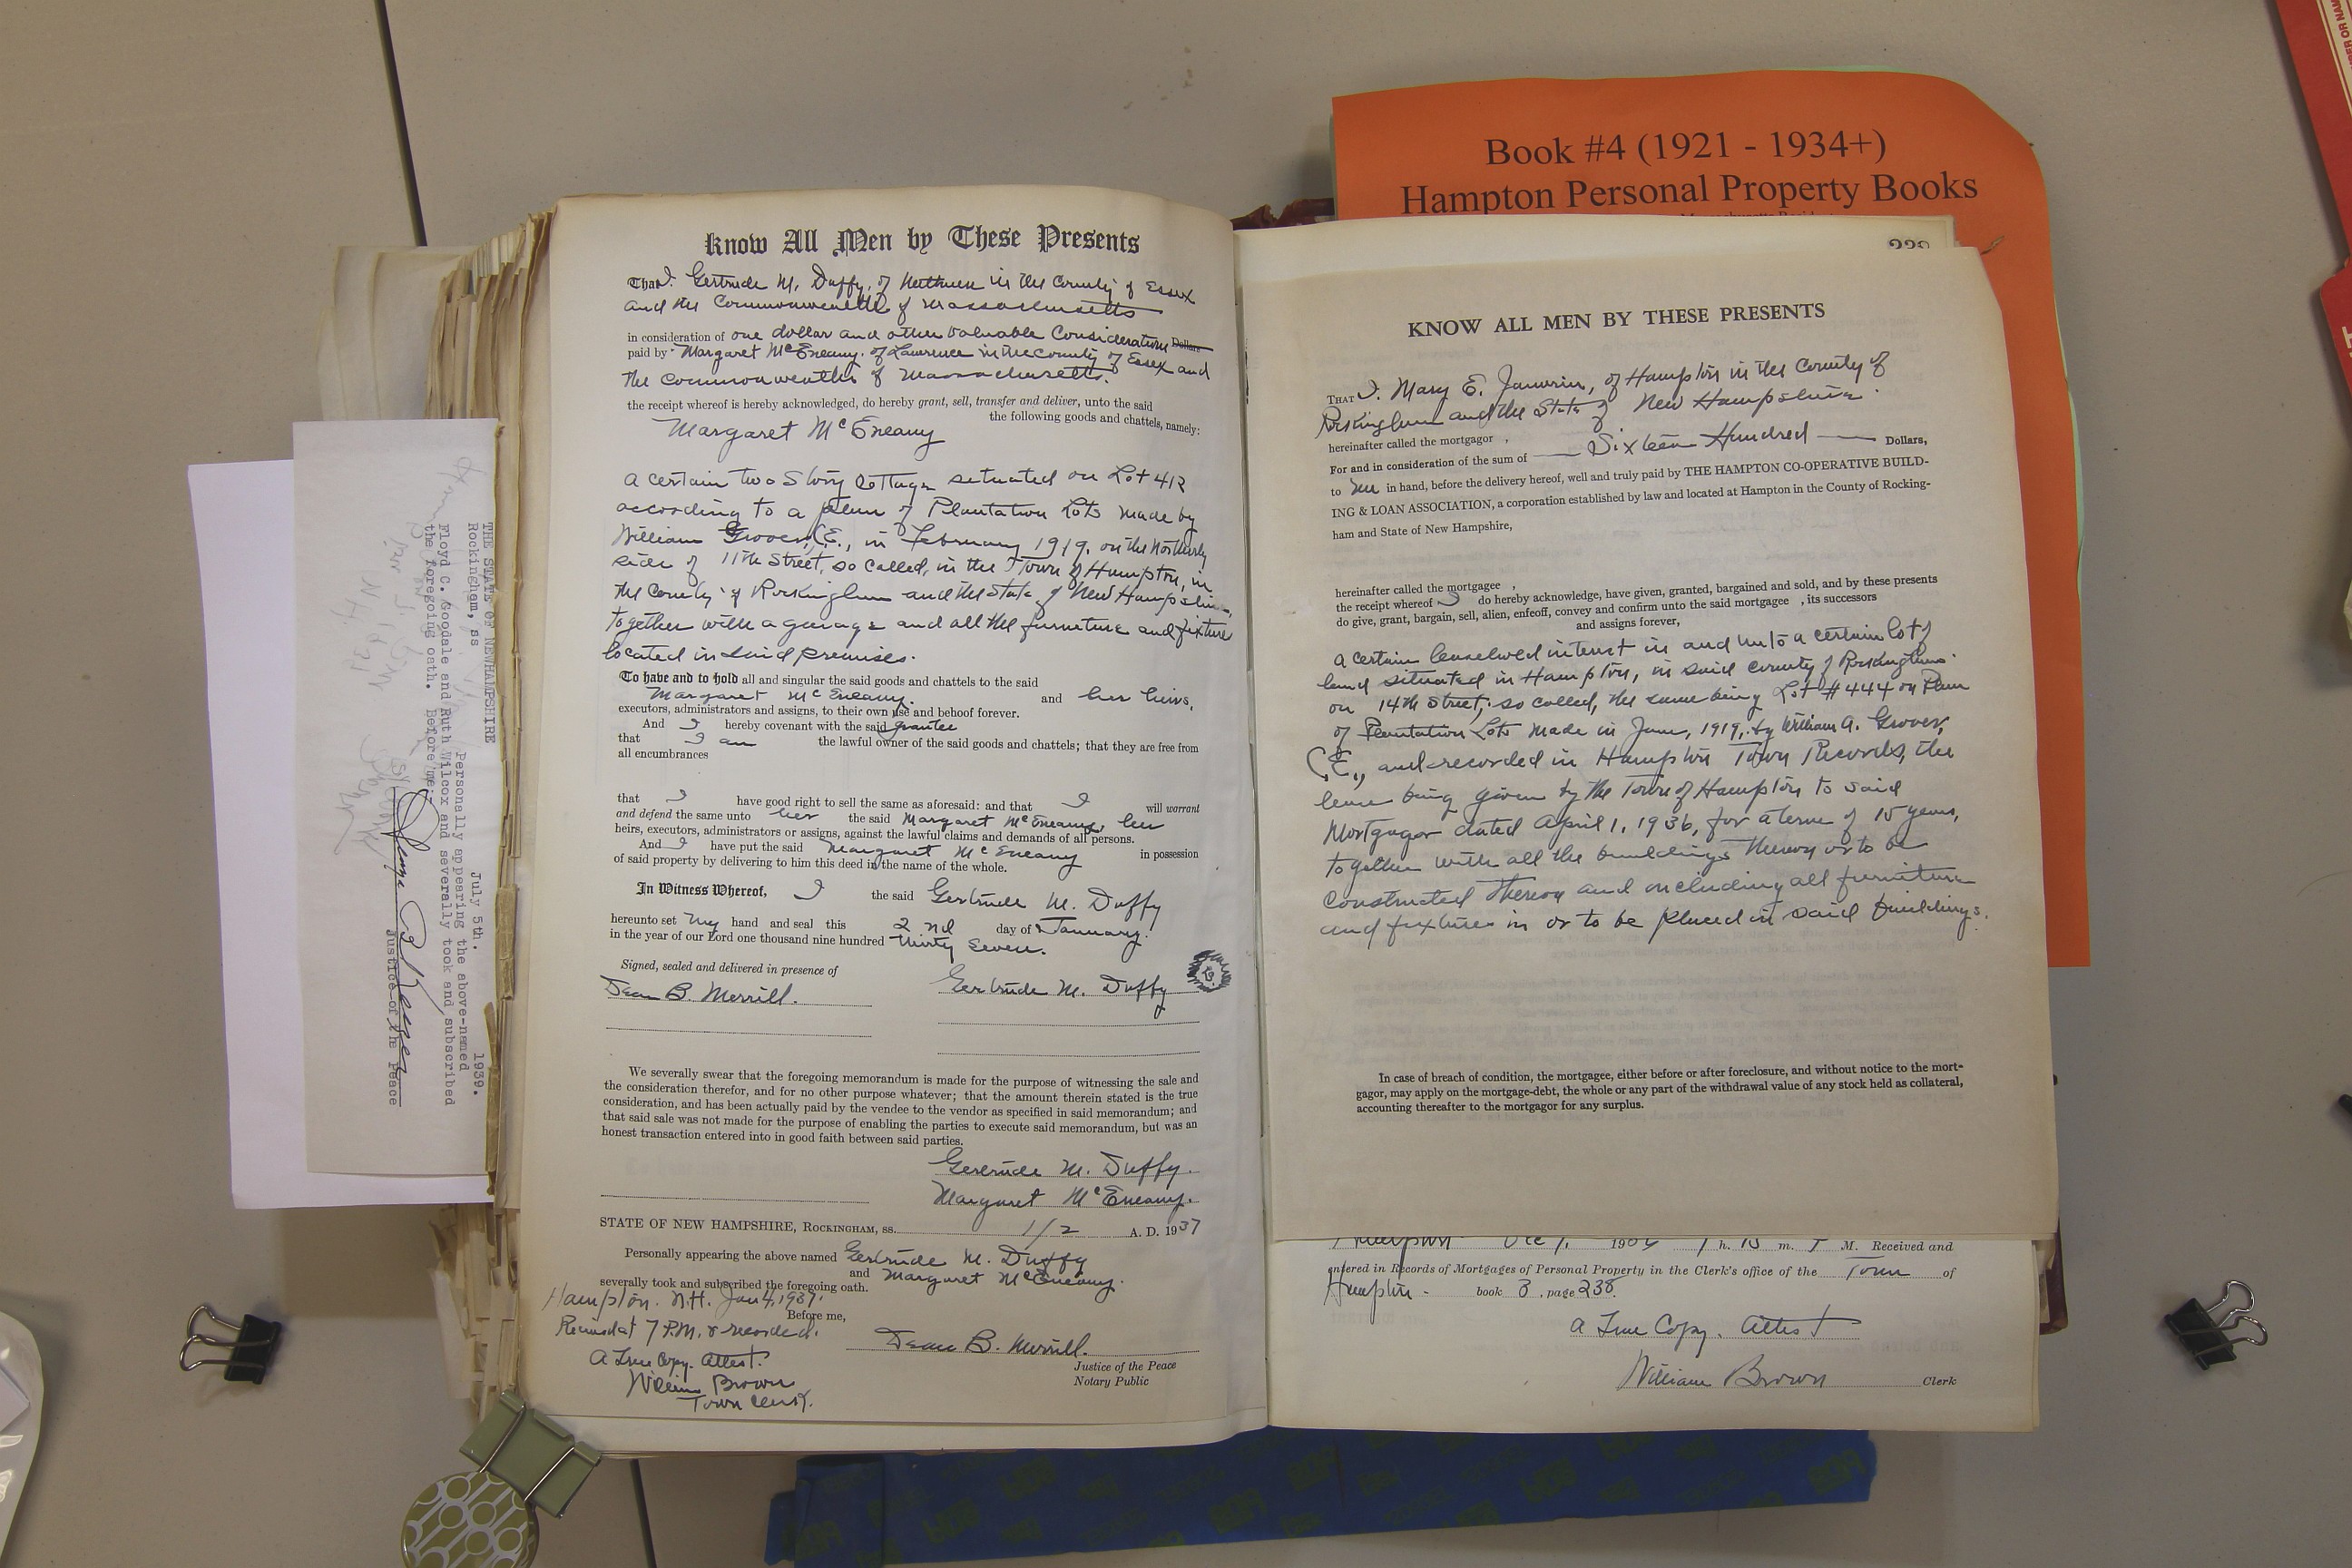 Book #4 (1921 - 1934+)
Hampton Personal Property Books
Know All Men by These Presents
That I. Gertrude M. Duffy, of Methuen in the County of Essex
and the Commonwealth of Massachusetts
in consideration of one dollar and other valuable Consideration Dollars
paid by Margaret McEneany. of Lawrence in the County of Essex and
the Commonwealth of Massachusetts.
the receipt whereof is hereby acknowledged, do hereby grant, sell, transfer and deliver, unto the said
Margaret McEneany the following goods and chattels, namely:
a certain two Story Cottage situated on Lot 412
according to a plan of Plantation Lots made by
William Grover, C.E., in February 1919. on the Northerly
side of 11th Street, so called, in the Town of Hampton, in
the County of Rockingham and the State of New Hampshire,
together with a garage and all the furniture and fixture
located in said premises.
To have and to hold all and singular the said goods and chattels to the said
Margaret McEneany. and her heirs,
executors, administrators and assigns, to their own use and behoof forever.
And I hereby covenant with the said grantee
that I am the lawful owner of the said goods and chattels; that they are free from
all encumbrances
that I have good right to sell the same as aforesaid: and that I will warrant
and defend the same unto her the said Margaret McEneany, her
heirs, executors, administrators or assigns, against the lawful claims and demands of all persons.
And I have put the said Margaret McEneany in possession
of said property by delivering to him this deed in the name of the whole.
In Witness Whereof, I the said Gertrude M. Duffy
hereunto set my hand and seal this 2nd day of January.
in the year of our Lord one thousand nine hundred Thirty Seven.
Signed, sealed and delivered in presence of
Dean B. Merrill. Gertrude M. Duffy
We severally swear that the foregoing memorandum is made for the purpose of witnessing the sale and
the consideration therefor, and for no other purpose whatever; that the amount therein stated is the true
consideration, and has been actually paid by the vendee to the vendor as specified in said memorandum; and
that said sale was not made for the purpose of enabling the parties to execute said memorandum, but was an
honest transaction entered into in good faith between said parties.
Gertrude M. Duffy.
Margaret McEneany.
STATE OF NEW HAMPSHIRE, ROCKINGHAM, ss. 1/2 A. D. 1937
Personally appearing the above named Gertrude M. Duffy
and Margaret McEneany.
severally took and subscribed the foregoing oath.
Hampton. N.H. Jan 4, 1937.
Before me,
Received at 7 P.M. & recorded.
Dean B. Merrill.
A True Copy. Attest.
Justice of the Peace
William Brown
Notary Public
Town Clerk.
THE STATE OF NEW HAMPSHIRE
Rockingham, ss July 5th. 1939.
Personally appearing the above-named
Floyd C. Goodale and Ruth Wilcox and severally took and subscribed
the foregoing oath. Before me:
Justice of the Peace
KNOW ALL MEN BY THESE PRESENTS
THAT I. Mary E. Janvrin, of Hampton in the County of
Rockingham and the State of New Hampshire.
hereinafter called the mortgagor ,
For and in consideration of the sum of Sixteen Hundred Dollars,
to me in hand, before the delivery hereof, well and truly paid by THE HAMPTON CO-OPERATIVE BUILD-
ING & LOAN ASSOCIATION, a corporation established by law and located at Hampton in the County of Rocking-
ham and State of New Hampshire,
hereinafter called the mortgagee ,
the receipt whereof I do hereby acknowledge, have given, granted, bargained and sold, and by these presents
do give, grant, bargain, sell, alien, enfeoff, convey and confirm unto the said mortgagee , its successors
and assigns forever,
a certain leasehold interest in and unto a certain lot of
land situated in Hampton, in said county of Rockingham
on 14th Street, so called, the same being Lot #444 on Plan
of Plantation Lots made in June, 1919, by William A. Grover,
C.E., and recorded in Hampton Town Records, the
lease being given by the Town of Hampton to said
Mortgagor dated April 1, 1936, for a term of 15 years,
together with all the buildings thereon or to be
constructed thereon and including all furniture
and fixtures in or to be placed in said buildings.
In case of breach of condition, the mortgagee, either before or after foreclosure, and without notice to the mort-
gagor, may apply on the mortgage-debt, the whole or any part of the withdrawal value of any stock held as collateral,
accounting thereafter to the mortgagor for any surplus.
Hampton 1 h. 15 m. P M. Received and
entered in Records of Mortgages of Personal Property in the Clerk's office of the Town of
Hampton. book 3, page 238.
A True Copy. Attest
William Brown Clerk